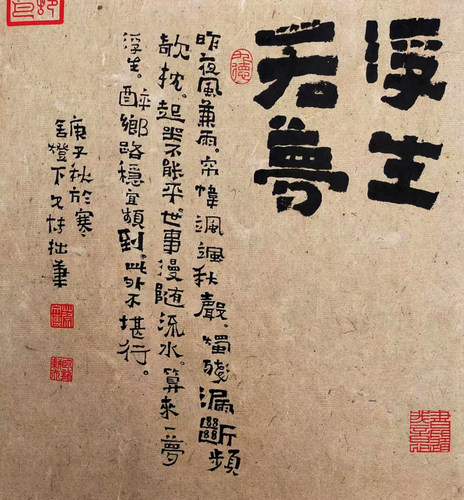 浮生
若夢
昨夜風兼雨。帘幃颯颯秋聲。燭殘漏斷頻
欹枕。起坐不能平。世事漫随流水。算來一夢
浮生。醉鄉路穩宜頻到。此外不堪行。
庚子秋於寒
燈下文拙筆